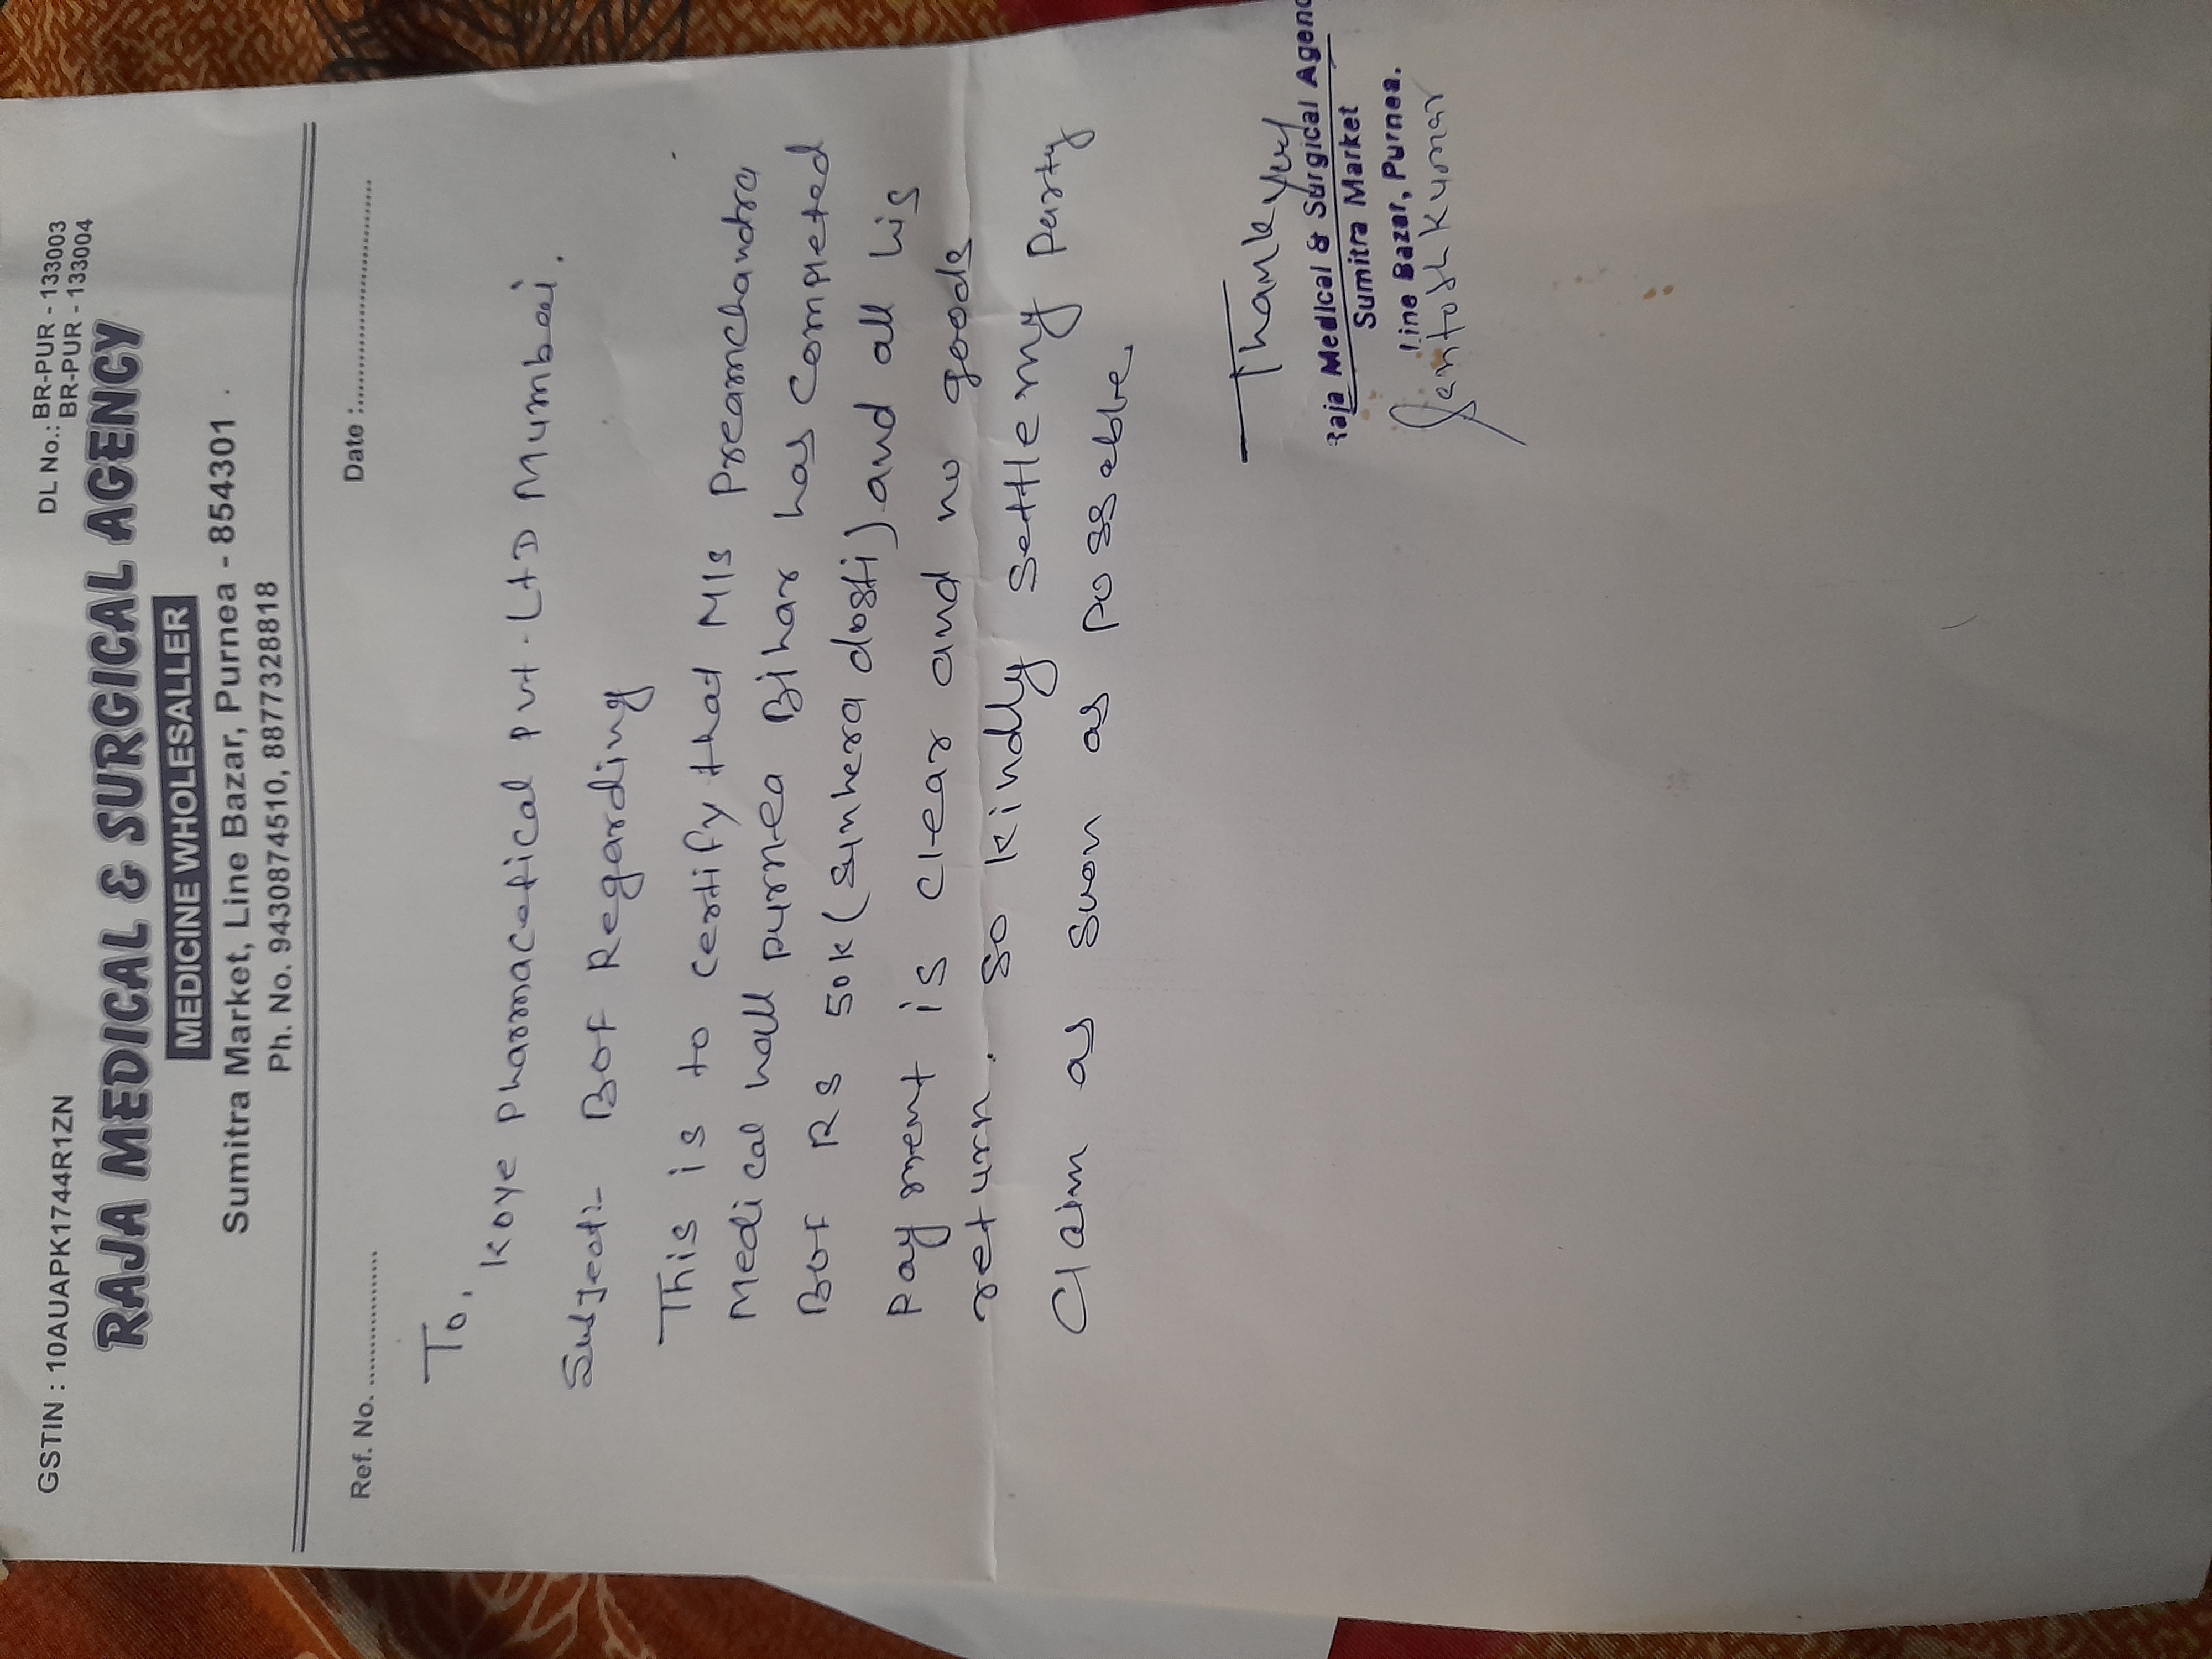 GSTIN : 10AUAPK1744R1ZN
DL No.: BR-PUR - 133003
BR-PUR - 133004
RAJA MEDICAL & SURGICAL AGENCY
MEDICINE WHOLESALLER
Sumitra Market, Line Bazar, Purnea - 854301
Ph. No. 9430874510, 8877328818
Ref. No. ....................
Date :................................
To,
Koye Pharmacetical Pvt. LtD Mumbai.
Subject:- BOF Regarding
This is to certify that M/s Preamchandra
Medical hall purnea Bihar has completed
BOF RS 50K (Sunhera dosti) and all his
Payment is clear and no goods
return. So kindly settle my party
Claim as soon as possable.
Thankyou
Raja Medical & Surgical Agenc
Sumitra Market
Line Bazar, Purnea.
Santosh Kumar